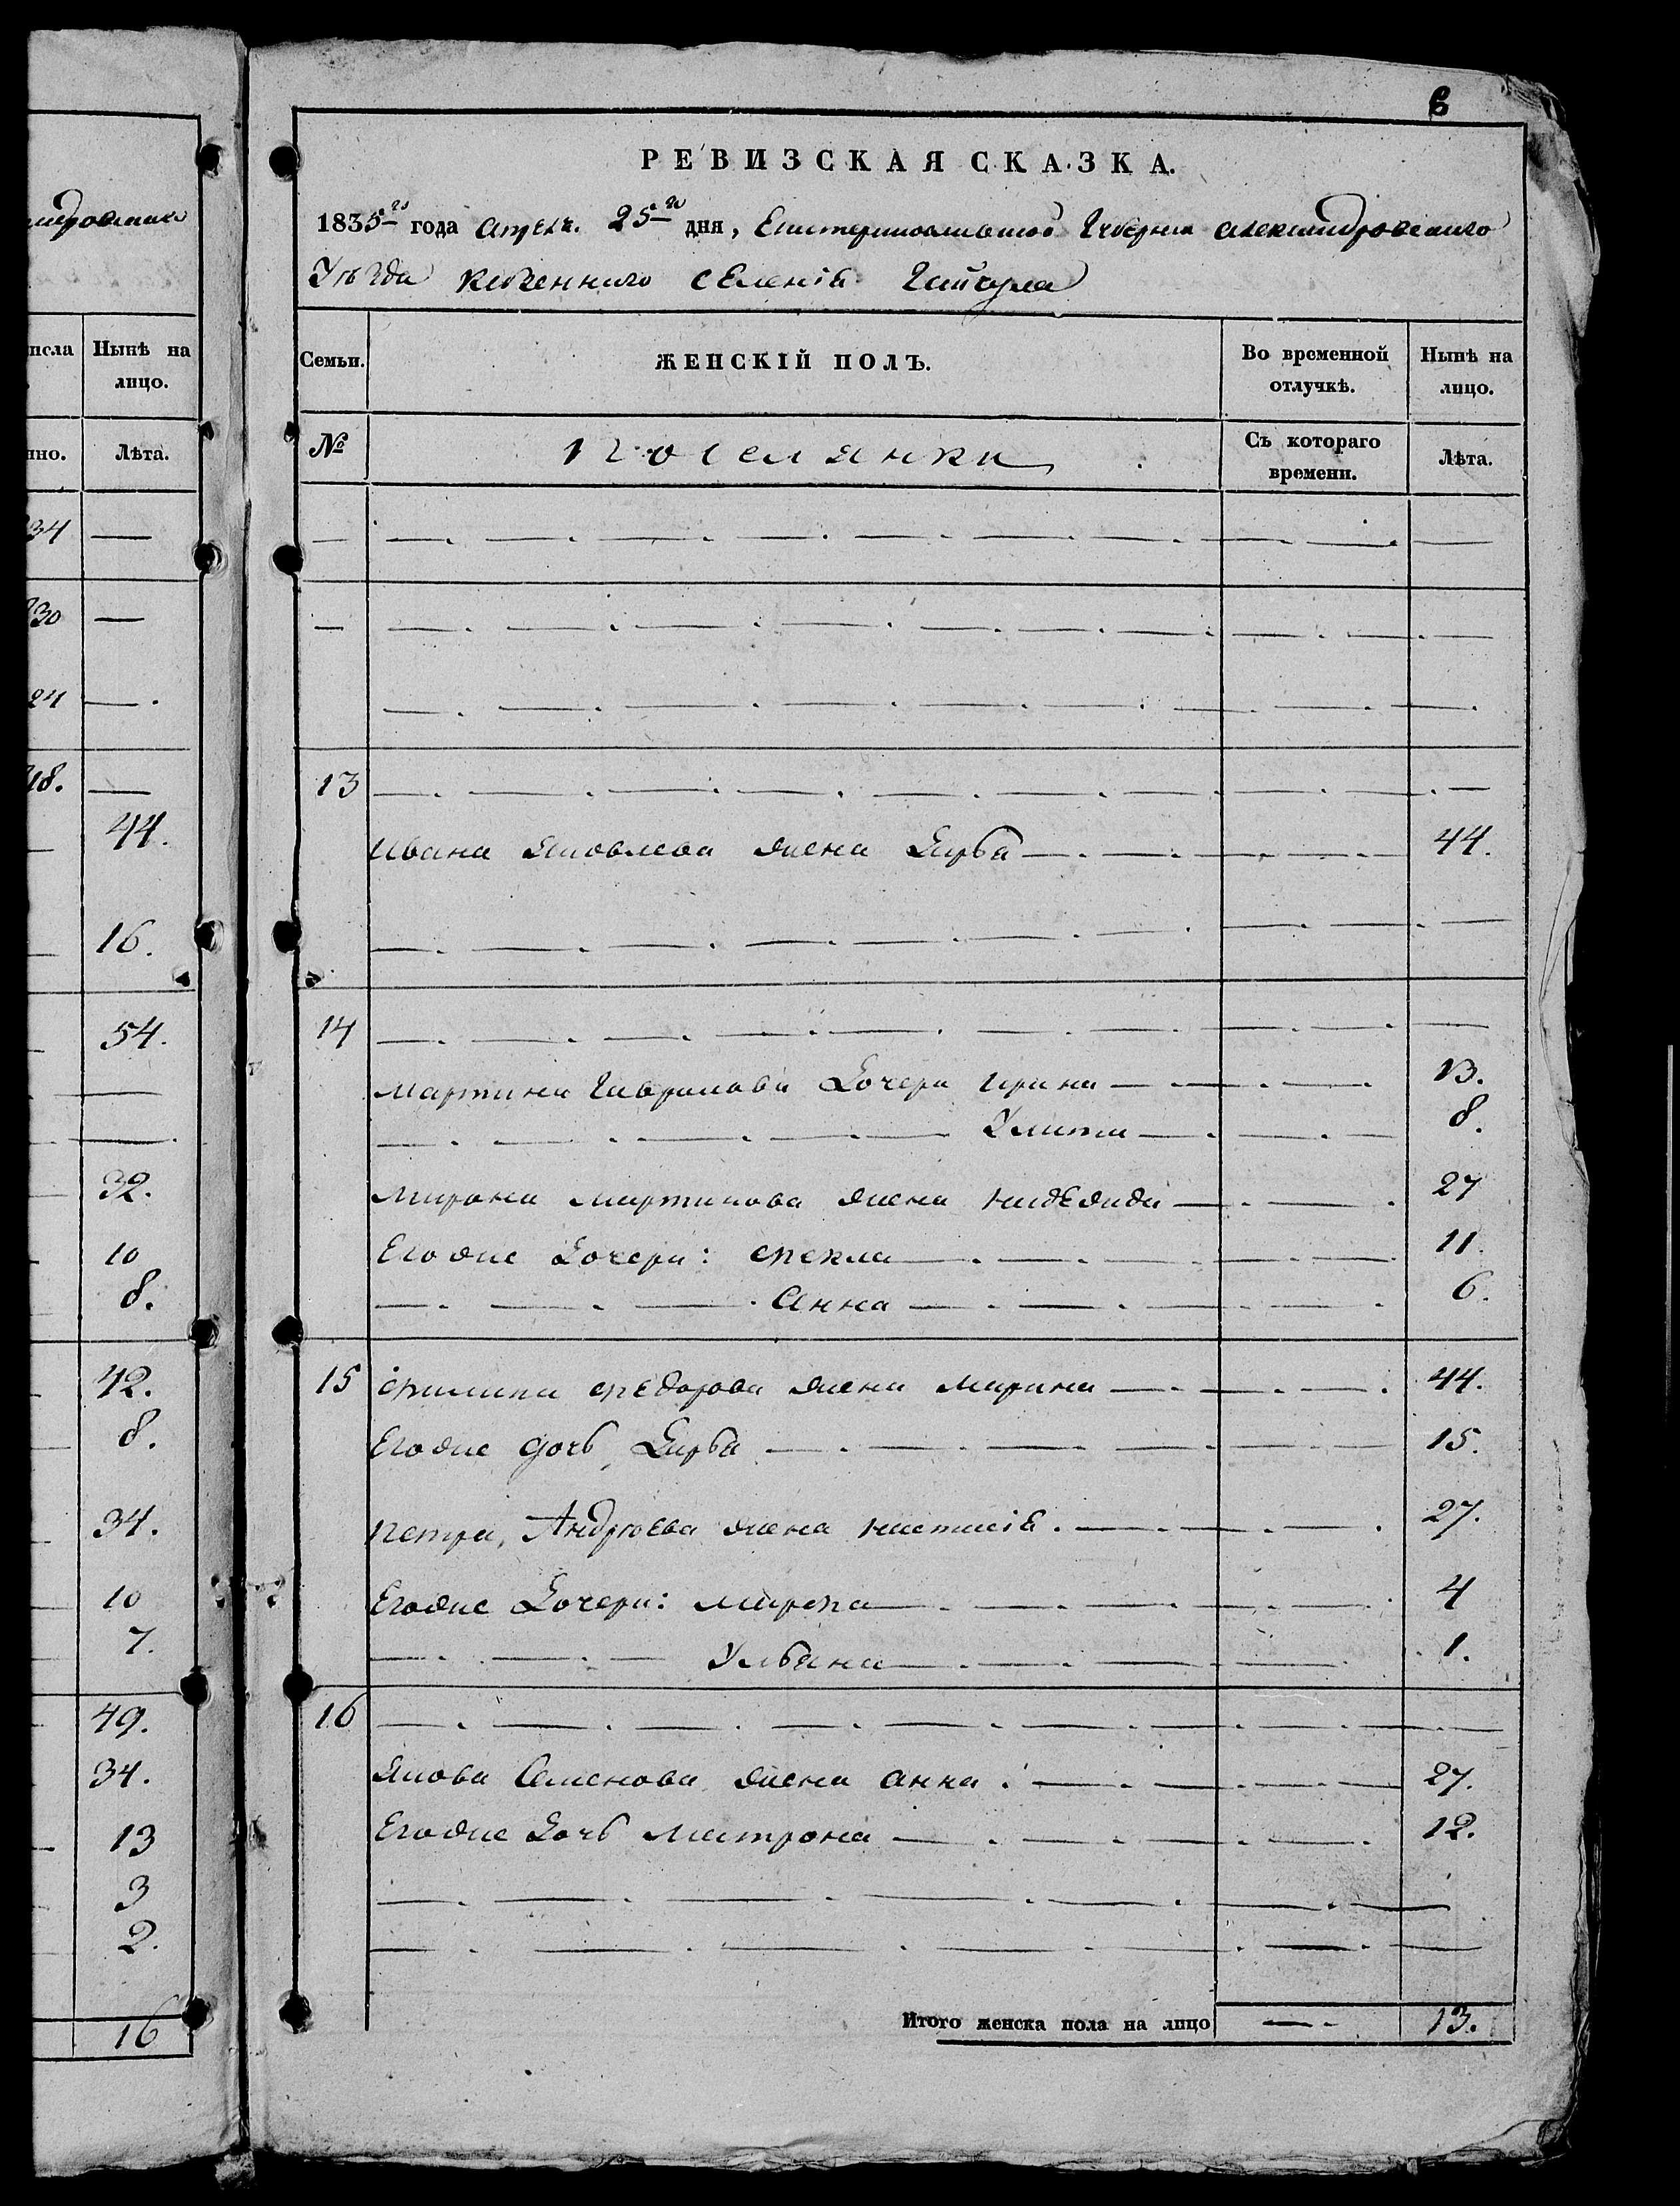 6
РЕВИЗСКАЯ СКАЗКА.
1835го года Апреля 25го дня, Екатеринославской Губернии Александровского
Уѣзда казенного селенія Гайчула
Семьи. ЖЕНСКІЙ ПОЛЪ. Во временной отлучкѣ. Нынѣ на лицо.
№ поселянки Съ котораго времени. Лѣта.
13
Ивана Яковлева жена Дарья 44.
14
Мартина Гаврилова дочери Ирина 13.
Улита 8.
Мирона Мартинова жена Надежда 27
Егоже дочери: Фекла 11.
Анна 6.
15 Филипа Федорова жена Марина 44.
Егоже дочь Дарья 15.
Петра Андреева жена Настасія 27.
Егоже дочери: Марфа 4
Ульяна 1.
16
Якова Семенова жена Анна 27.
Егоже дочь Матрона 12.
Итого женска пола на лицо 13.
Нынѣ на
лицо.
Лѣта.
44.
16.
54.
32.
10
8.
42.
8.
34.
10
7.
49.
34.
13
3
2.
16